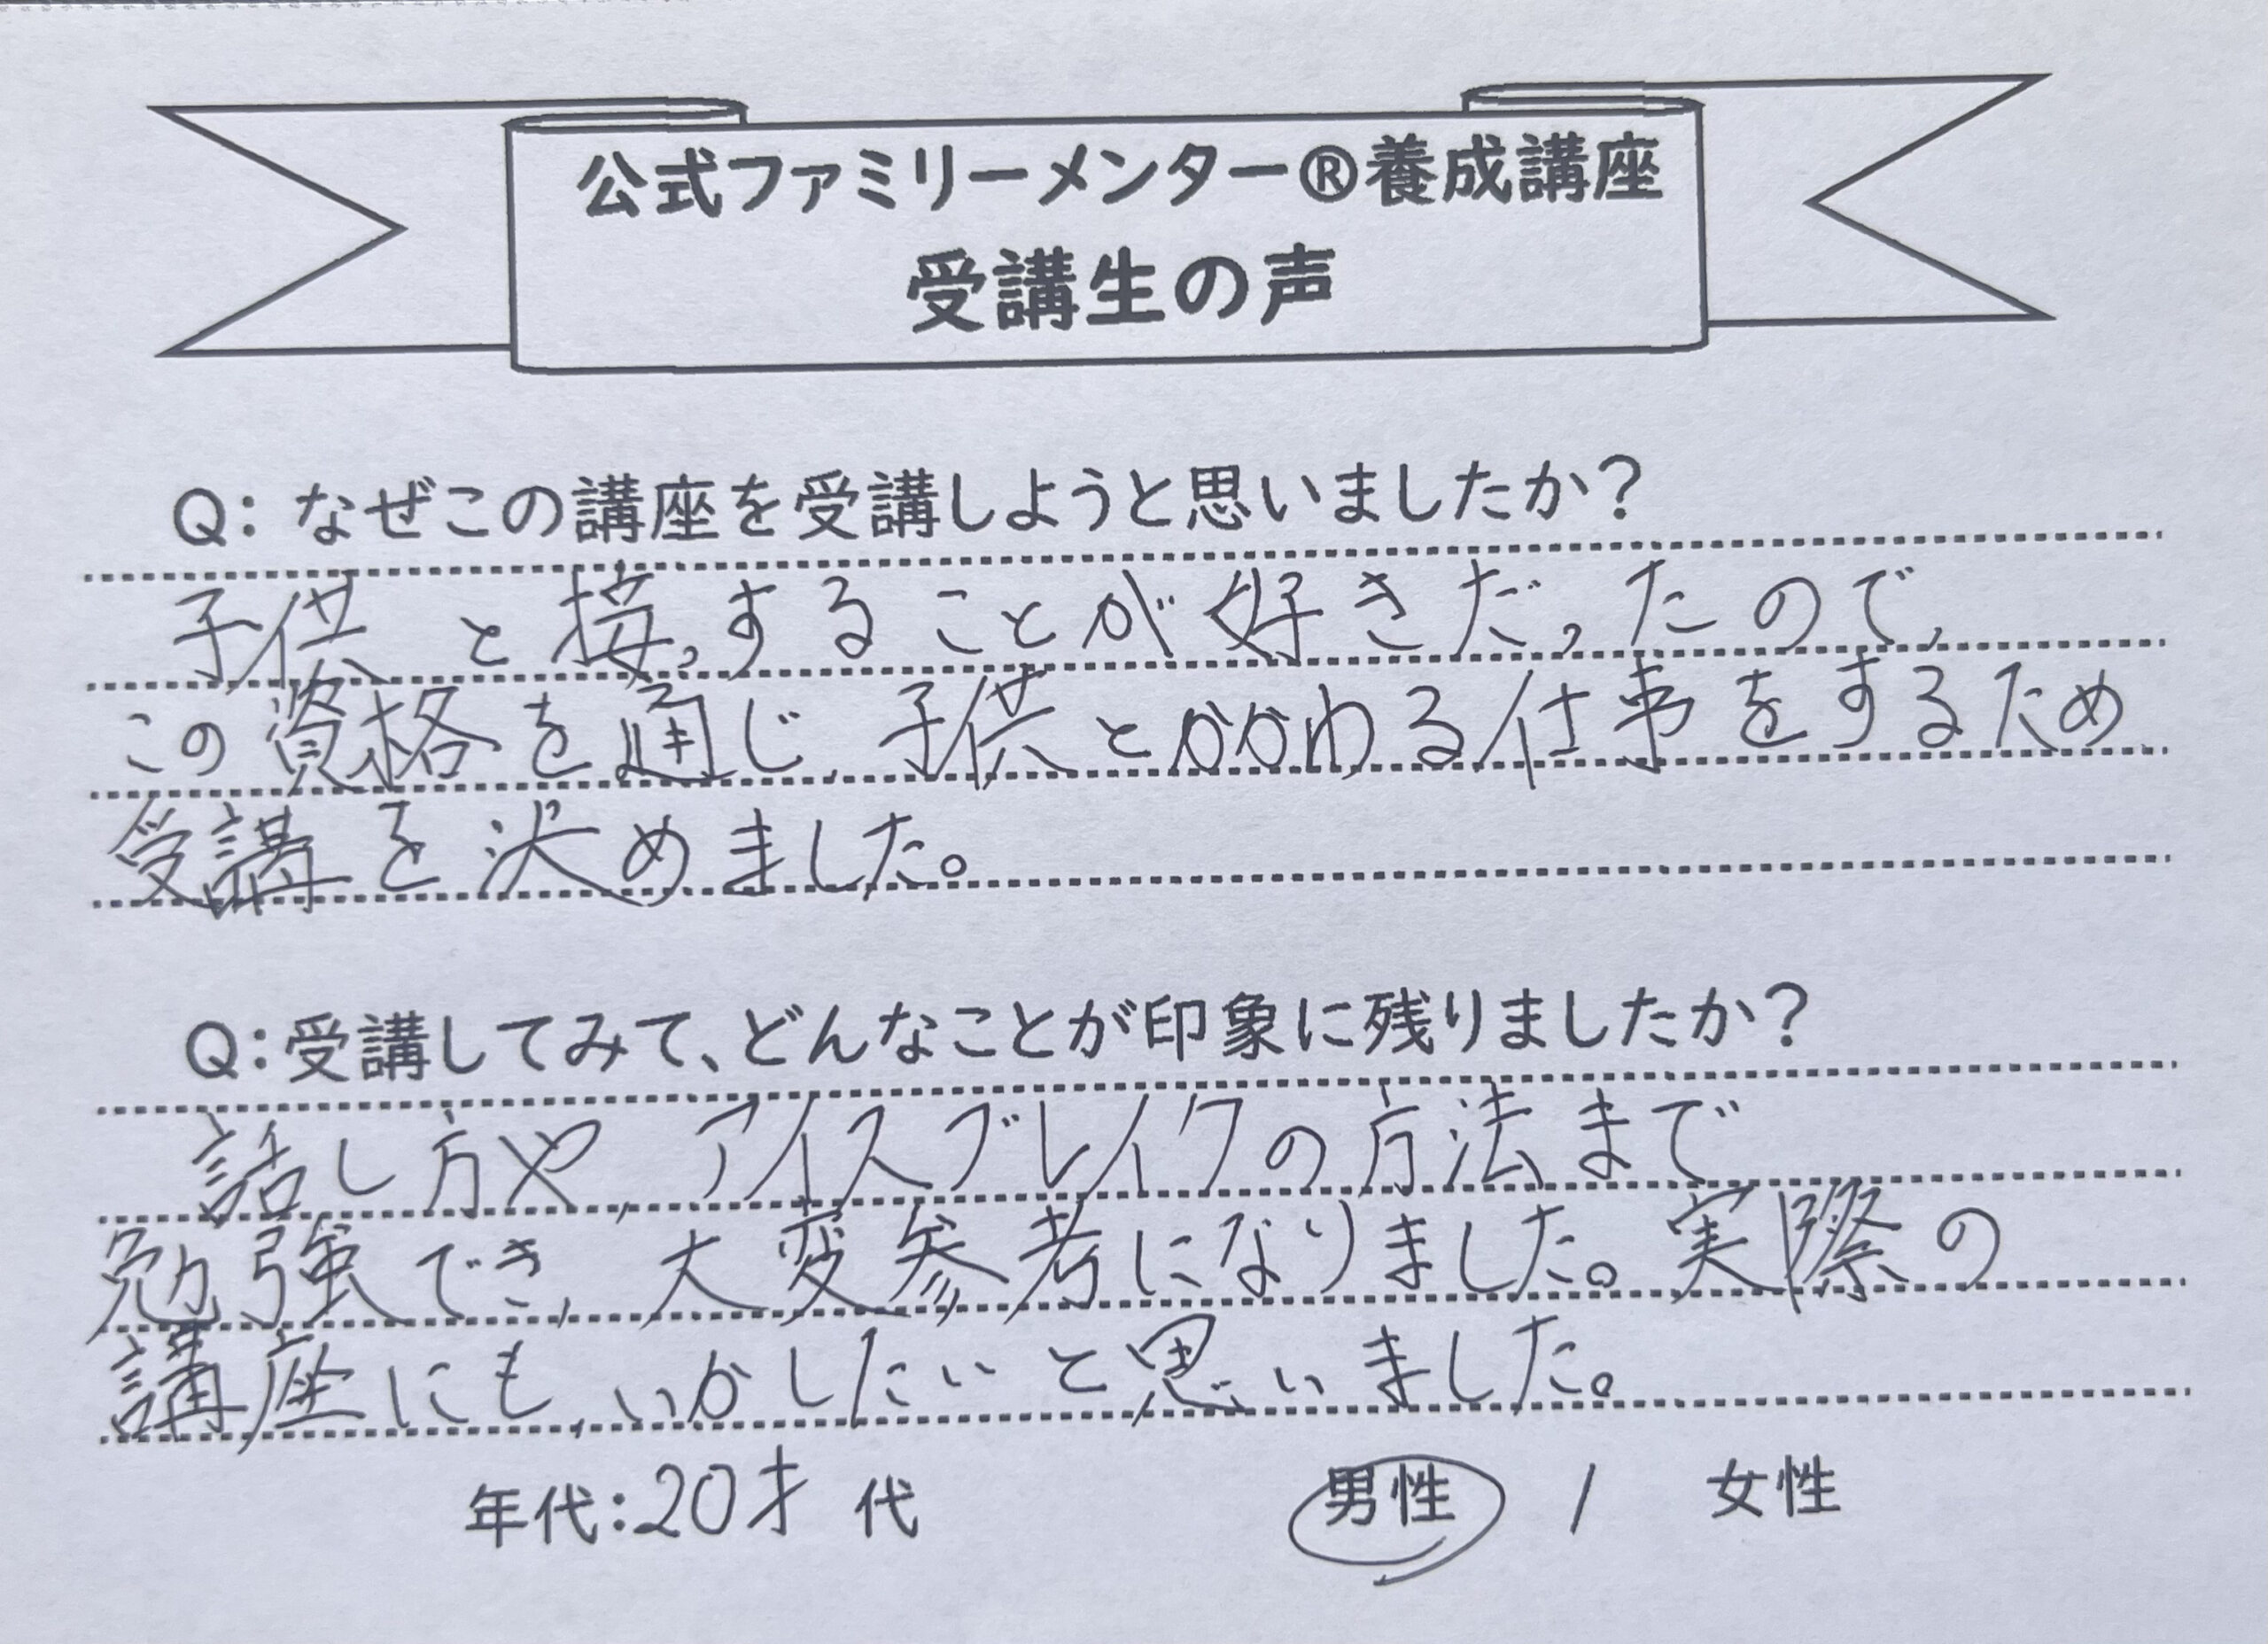 公式ファミリーメンター®養成講座
受講生の声
Q: なぜこの講座を受講しようと思いましたか?
子供と接することが好きだったので、
この資格を通じ、子供とかかわる仕事をするため
受講を決めました。
Q:受講してみて、どんなことが印象に残りましたか?
話し方や、アイスブレイクの方法まで
勉強でき、大変参考になりました。実際の
講座にも、いかしたいと思いました。
年代:20才 代 男性 / 女性